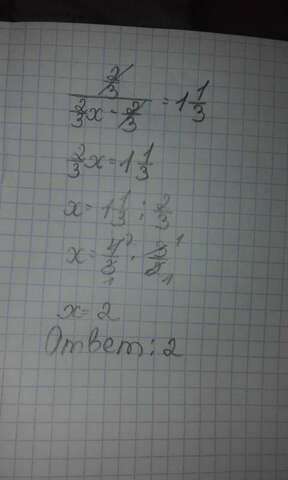 2/3 / (2/3x - 2/3) = 1 1/3
2/3x = 1 1/3
x = 1 1/3 : 2/3
x = 4/3 2 1 · 3/2 1 1
x = 2
Ответ: 2